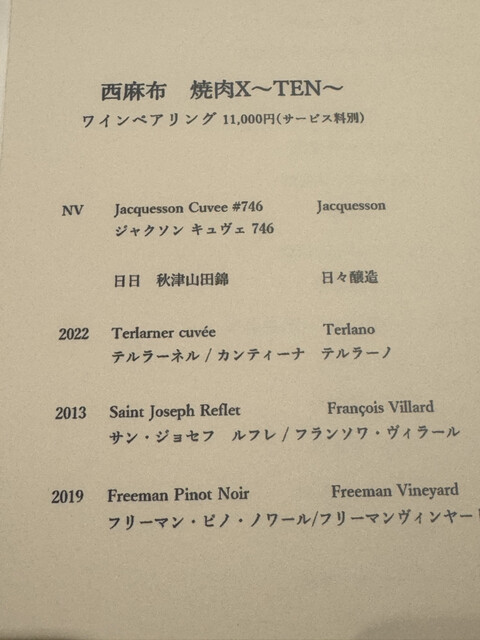 西麻布 焼肉X～TEN～
ワインペアリング 11,000円(サービス料別)
NV Jacquesson Cuvee #746 Jacquesson
ジャクソン キュヴェ 746
日日 秋津山田錦 日々醸造
2022 Terlarner cuvée Terlano
テルラーネル / カンティーナ テルラーノ
2013 Saint Joseph Reflet François Villard
サン・ジョセフ ルフレ / フランソワ・ヴィラール
2019 Freeman Pinot Noir Freeman Vineyard
フリーマン・ピノ・ノワール/フリーマンヴィンヤー